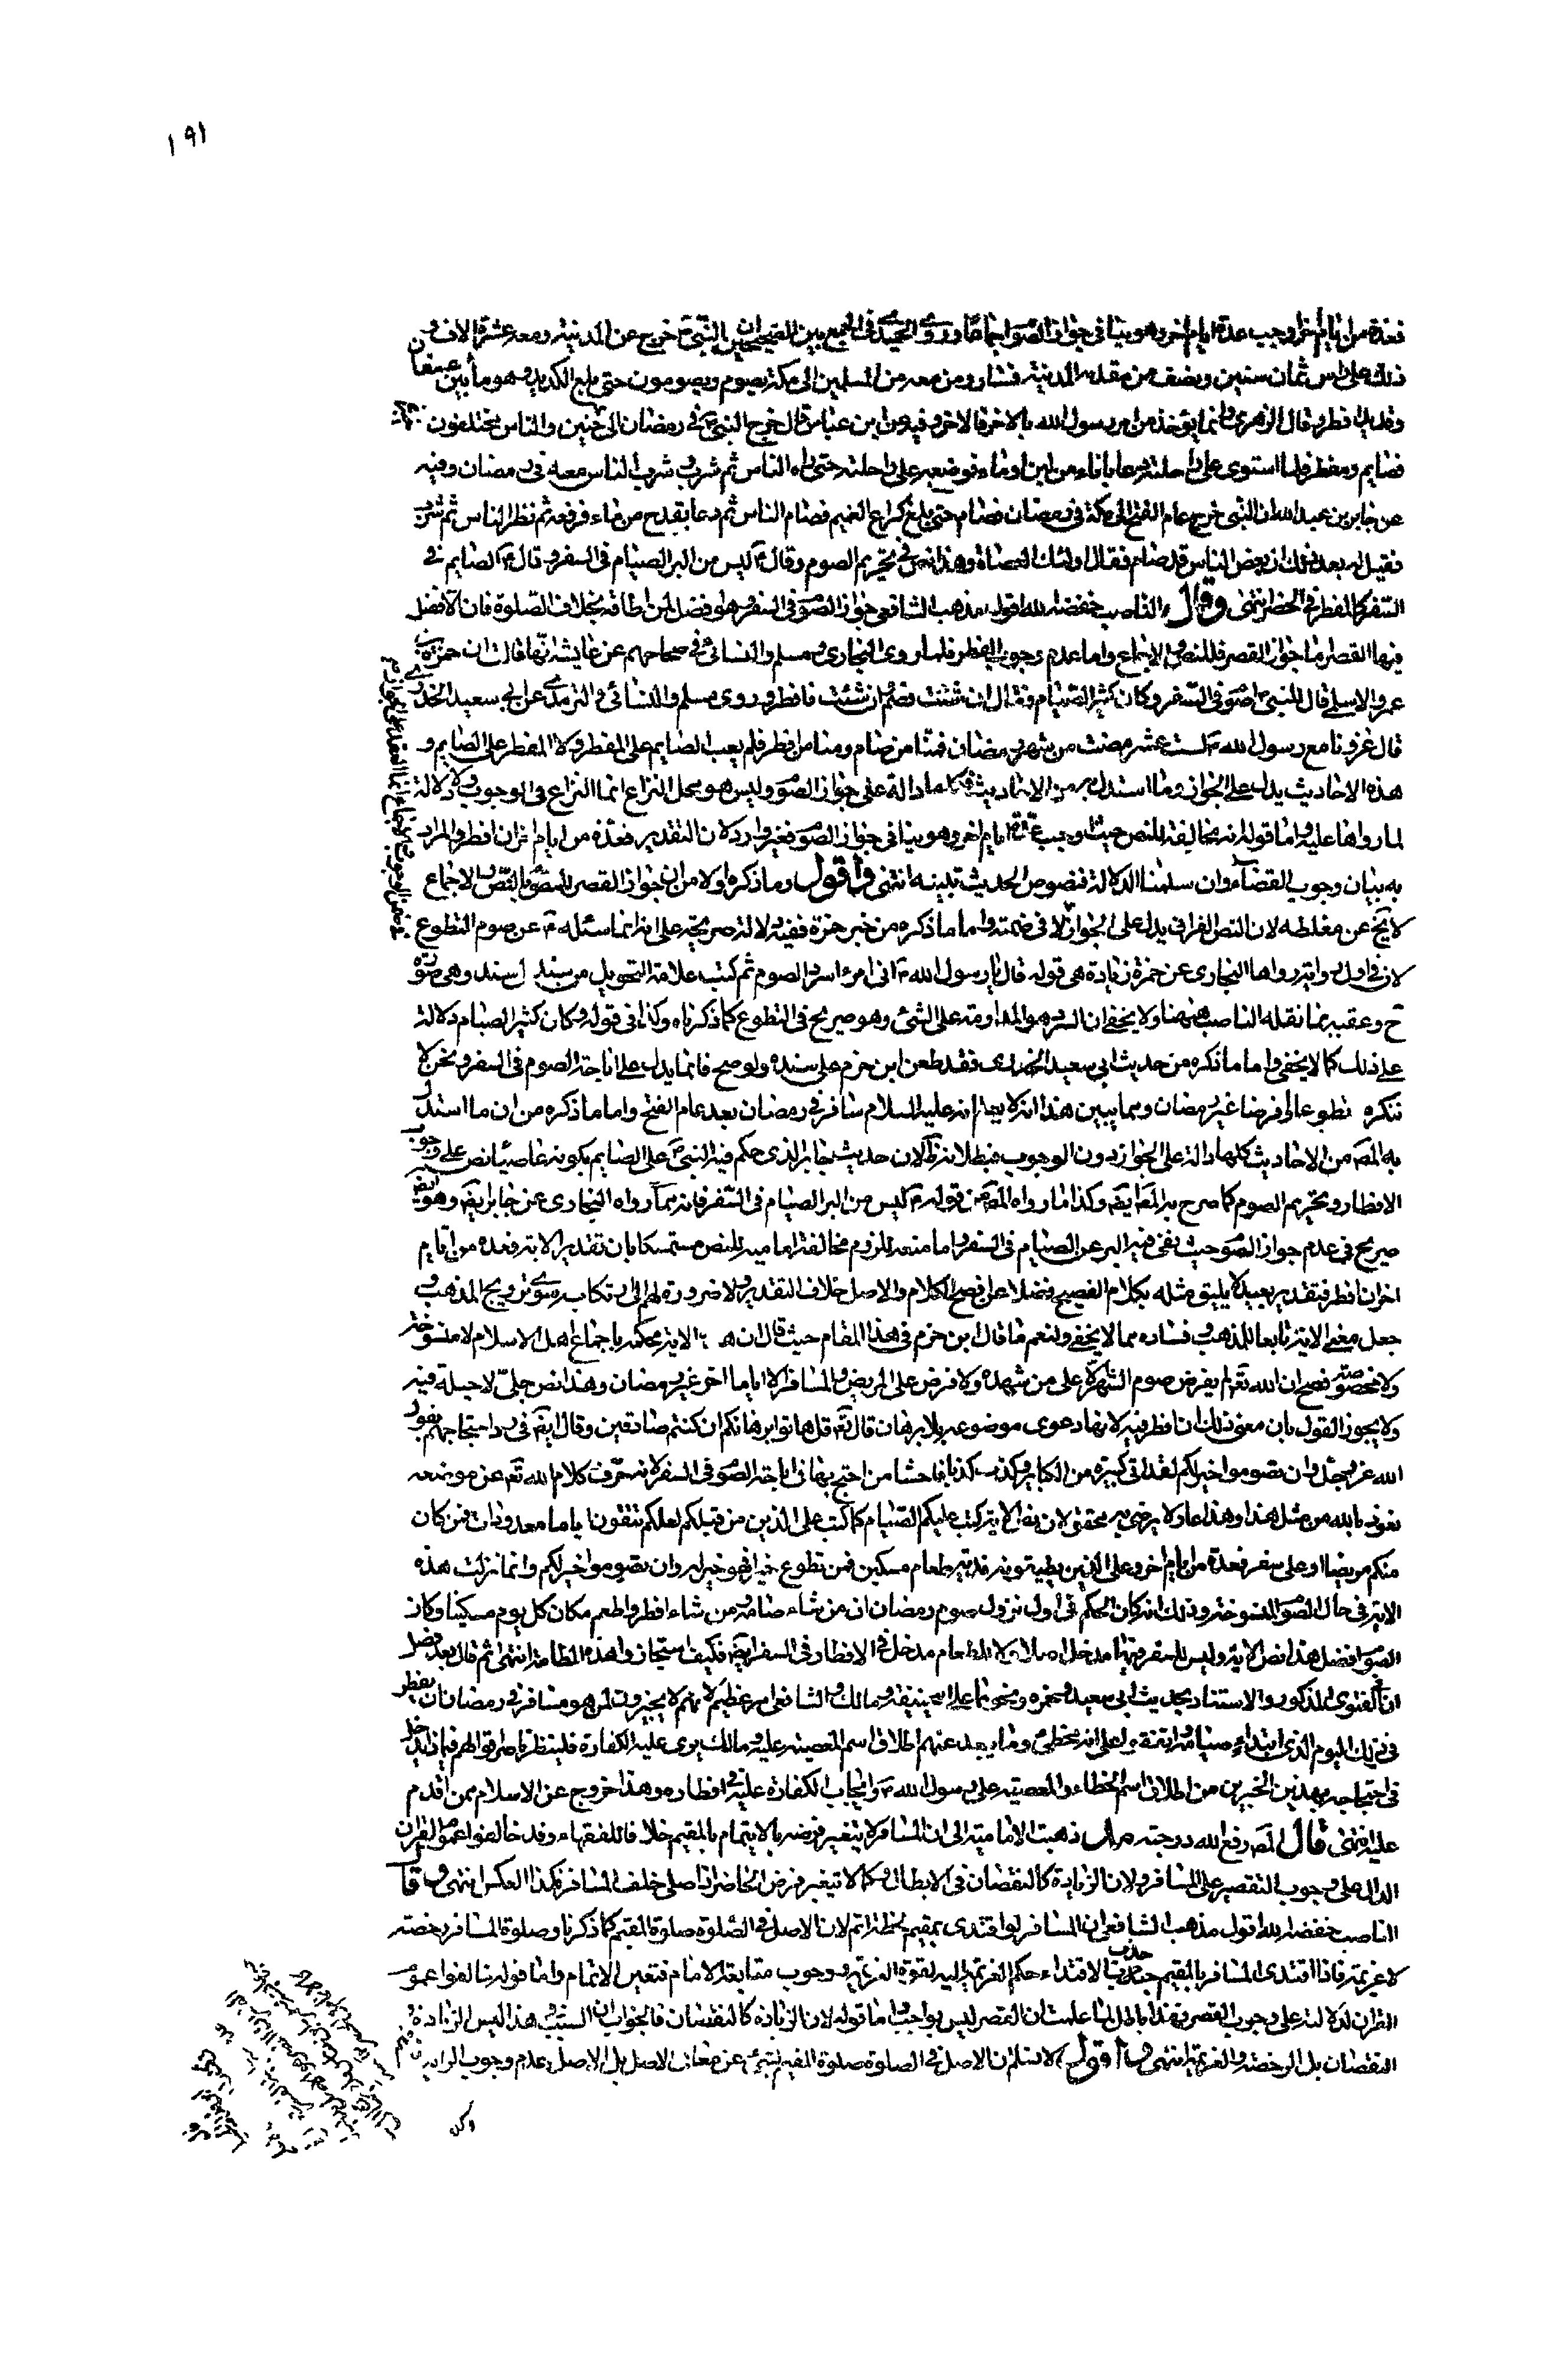 ١٩١
فعدة من ايام اخر اوجب عدة ايام اخر وهو ينافي جواز الصوم اجماعا وروى الحميدي في الجمع بين الصحيحين ان النبي خرج عن المدينة ومعه عشرة الاف و
ذلك على راس ثمان سنين ونصف من مقدمه المدينة فسار ومن معه من المسلمين الى مكة يصوم ويصومون حتى بلغ الكديد وهو ما بين عسفان
وقديد افطر وقال الزهري وانما يؤخذ من امر رسول الله بالاخر فالاخر وفيه عن ابن عباس قال خرج النبي في رمضان الى حنين والناس مختلفون
فصايم ومفطر فلما استوى على راحلته دعا باناء من لبن او ماء فوضعه على راحلته حتى راه الناس ثم شرب وشرب الناس معه في رمضان وفيه
عن جابر بن عبد الله ان النبي خرج عام الفتح الى مكة في رمضان فصام حتى بلغ كراع الغميم فصام الناس ثم دعا بقدح من ماء فرفعه ثم نظر الناس ثم شرب
فقيل له بعد ذلك ان بعض الناس قد صام فقال اولئك العصاة وهذا نص في تحريم الصوم وقال ليس من البر الصيام في السفر وقال الصايم في
السفر كالمفطر في الحضر انتهى وقال الناصب خفضه الله اقول مذهب الشافعي جواز الصوم في السفر وهو افضل لمن اطاقه بخلاف الصلوة فان الافضل
فيها القصر اما جواز القصر فللنص والاجماع واما عدم وجوب الفطر فلما روى البخاري ومسلم والنسائي في صحاحهم عن عايشة انها قالت ان حمزة بن
عمرو الاسلمي قال للنبي اصوم في السفر وكان كثير الصيام فقال ان شئت فصم وان شئت فافطر وروى مسلم والنسائي والترمذي عن ابي سعيد الخدري
قال غزونا مع رسول الله لست عشر مضت من شهر رمضان فمنا من صام ومنا من افطر فلم يعب الصايم على المفطر ولا المفطر على الصايم و
هذه الاحاديث يدل على الجواز وما استدل به من الاحاديث فكلها دالة على جواز الصوم وليس هو محل النزاع انما النزاع في الوجوب ولا دلالة
لما رواها عليه واما قوله انه مخالفة للنص حيث اوجب عدة ايام اخر وهو ينافي جواز الصوم فغير وارد لان التقدير فعدة من ايام اخر ان افطر والمراد
به بيان وجوب القضاء وان سلمنا الدلالة فنصوص الحديث تبينه انتهى واقول وما ذكره اولا من ان جواز القصر للنص والاجماع
لا يخ عن مغلطه لان النص القراني يدل على الجواز لا في ضمنه واما ما ذكره من خبر حمزة ففيه دلالة صريحة على انه انما سئله عن صوم التطوع
لان في اول رواية رواها البخاري عن حمزة زيادة هي قوله قال يا رسول الله اني امرء اسرد الصوم ثم كتب علامة التحويل من سند الى سند وهي صورة
ح وعقبه بما نقله الناصب ههنا ولا يخفى ان السرد هو المداومة على الشئ وهو صريح في التطوع كما ذكرناه وكذا في قوله وكان كثير الصيام دلالة
على ذلك كما لا يخفى واما ما ذكره من حديث ابي سعيد الخدري فقد طعن ابن حزم على سنده ولو صح فانما يدل على اباحة الصوم في السفر ونحن لا
ننكره تطوعا او فرضا غير رمضان ومما يبين هذا انه لا يعلم انه عليه السلام سافر في رمضان بعد عام الفتح واما ما ذكره من ان ما استدل
به المص من الاحاديث كلها دالة على الجواز دون الوجوب فبطلانه ظ لان حديث جابر الذي حكم فيه النبي على الصايم بكونه عاصيا نص على وجوب
الافطار وتحريم الصوم كما صرح به المص ايضا وكذا ما رواه المص من قوله ليس من البر الصيام في السفر فانه مما رواه البخاري عن جابر ايضا وهو ايضا
صريح في عدم جواز الصوم حيث نفى فيه البر عن الصيام في السفر واما منعه للزوم مخالفة امامه للنص مستمسكا بان تقدير الاية فعدة من ايام
اخر ان افطر فتقدير بعيد لا يليق مثله بكلام الفصيح فضلا عن افصح الكلام والاصل خلاف التقدير ولا ضرورة لهم الى ارتكابه سوى ترويج المذهب و
جعل معنى الاية تابعا للمذهب وفساده مما لا يخفى ولنعم ما قال ابن حزم في هذا المقام حيث قال ان هذه الاية محكمة باجماع اهل الاسلام لا منسوخة
ولا مخصوصة فصح ان الله تعالى لم يفرض صوم الشهر الا على من شهده ولا فرض على المريض والمسافر الا اياما اخر غير رمضان وهذا نص جلي لا حيلة فيه
ولا يجوز القول بان معنى ذلك ان افطر فيه لانها دعوى موضوعة بلا برهان قال تعالى قل هاتوا برهانكم ان كنتم صادقين وقال ايضا في رد احتجاجهم بقول
الله عز وجل وان تصوموا خير لكم لقد اتى كبيرة من الكباير وكذب كذبا فاحشا من احتج بها في اباحة الصوم في السفر لانه حرف كلام الله تعالى عن موضعه
نعوذ بالله من مثل هذا وهذا عار لا يرضى به محقق لان نص الاية كتب عليكم الصيام كما كتب على الذين من قبلكم لعلكم تتقون اياما معدودات فمن كان
منكم مريضا او على سفر فعدة من ايام اخر وعلى الذين يطيقونه فدية طعام مسكين فمن تطوع خيرا فهو خير له وان تصوموا خير لكم وانما نزلت هذه
الاية في حال الصوم المنسوخة وذلك انه كان الحكم في اول نزول صوم رمضان ان من شاء صامه ومن شاء افطر واطعم مكان كل يوم مسكينا وكان
الصوم افضل هذا نص الاية وليس للسفر فيها مدخل اصلا ولا للاطعام مدخل في الافطار في السفر ايضا فكيف استجازوا هذه الطامة انتهى ثم قال بعد فصل
ان الفتوى المذكور والاستناد بحديث ابي سعيد وحمزة ونحوهما على ابي حنيفة ومالك والشافعي امر عظيم لانهم لا يجيزون لمن هو مسافر في رمضان ان يفطر
في ذلك اليوم الذي ابتداء صيامه
في احتجاجه بهذين الخبرين من اطلاق اسم الخطاء والمعصية على رسول الله وايجاب الكفارة عليه في افطاره وهذا خروج عن الاسلام ممن اقدم
عليه انتهى قال المص رفع الله درجته ذهبت الامامية الى ان المسافر لا يتغير فرضه بالايتمام بالمقيم خلافا للفقهاء وقد خالفوا عموم القران
الدال على وجوب التقصير على المسافر ولان الزيادة كالنقصان في الابطال وكما لا يتغير فرض الحاضر اذا صلى خلف المسافر فكذا العكس انتهى وقال
الناصب خفضه الله اقول مذهب الشافعي ان المسافر لو اقتدى بمقيم لحظة اتم لان الاصل في الصلوة صلوة المقيم كما ذكرنا وصلوة المسافر رخصة
لا عزيمة فاذا اقتدى المسافر بالمقيم جذب الاقتداء حكم العزيمة اليه لقوة العزيمة ووجوب متابعة الامام فتعين الاتمام واما قوله خالفوا عموم
القران لدلالته على وجوب القصر فهذا باطل لما علمت ان القصر ليس بواجب واما قوله لان الزيادة كالنقصان فالجواب ان السبب هذا ليس الزيادة و
النقصان بل الرخصة والعزيمة انتهى واقول لا نسلم ان الاصل في الصلوة صلوة المقيم بشئ عن معاني الاصل بل الاصل عدم وجوب الزايد